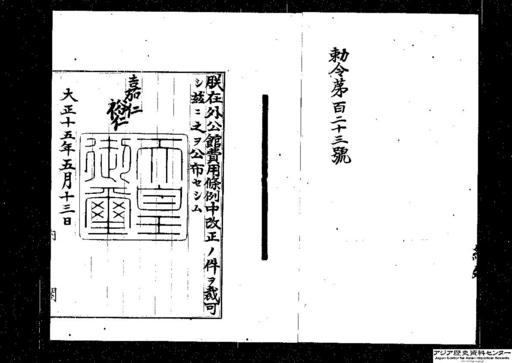 勅令第百二十三號
朕在外公館費用條例中改正ノ件ヲ裁可
シ茲ニ之ヲ公布セシム
嘉仁
裕仁
天皇
御璽
大正十五年五月十三日
内閣
アジア歴史資料センター
Japan Center for Asian Historical Records